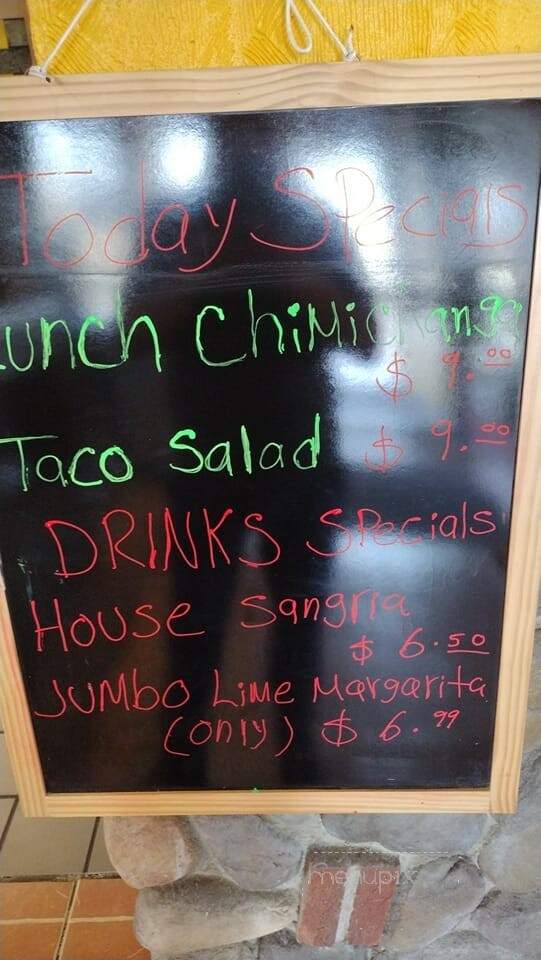 Today Specials
Lunch Chimichanga
$ 9.00
Taco Salad $ 9.00
DRINKS Specials
House Sangria
$ 6.50
Jumbo Lime Margarita
(only) $ 6.99
menupix